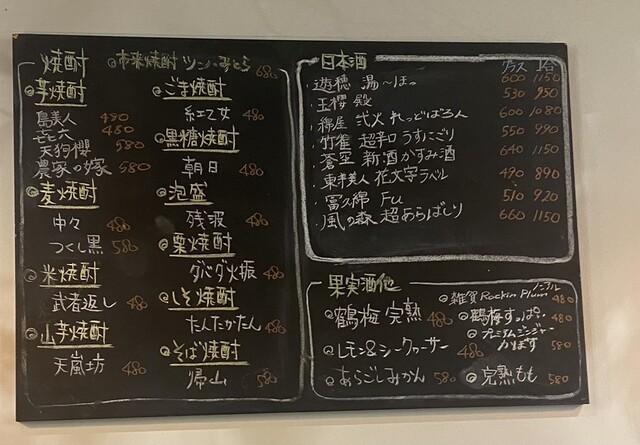 焼酎
◎本米焼酎 ツンのみとら 680
芋焼酎
島美人 480
㐂六 480
天狗櫻 580
農家の嫁 580
◎麦焼酎
中々 480
つくし黒 580
◎米焼酎
武者返し 480
◎山芋焼酎
天嵐坊 480
◎ごま焼酎
紅乙女 480
黒糖焼酎
朝日 480
◎泡盛
残波 480
◎栗焼酎
ダバダ火振 480
◎しそ焼酎
たんたかたん 480
◎そば焼酎
帰山 580
日本酒 グラス 1合
・遊穂 湯〜ほっ 600 1150
・玉櫻 殿 530 950
・綿屋 弐火 れっどばろん 600 1080
・竹雀 超辛口 うすにごり 550 990
・蒼空 新酒 かすみ酒 640 1150
・東洋美人 花文字ラベル 490 890
・富久錦 Fu. 510 920
・風の森 超あらばしり 660 1150
果実酒他
◎雑賀 Rockin Plum ノンアル 480
◎鶴梅 完熟 480
◎鶴梅すっぱい 480
◎プレミアムジンジャー かぼす 580
◎レモン&シークヮーサー 480
◎あらごしみかん 580
◎完熟もも 580